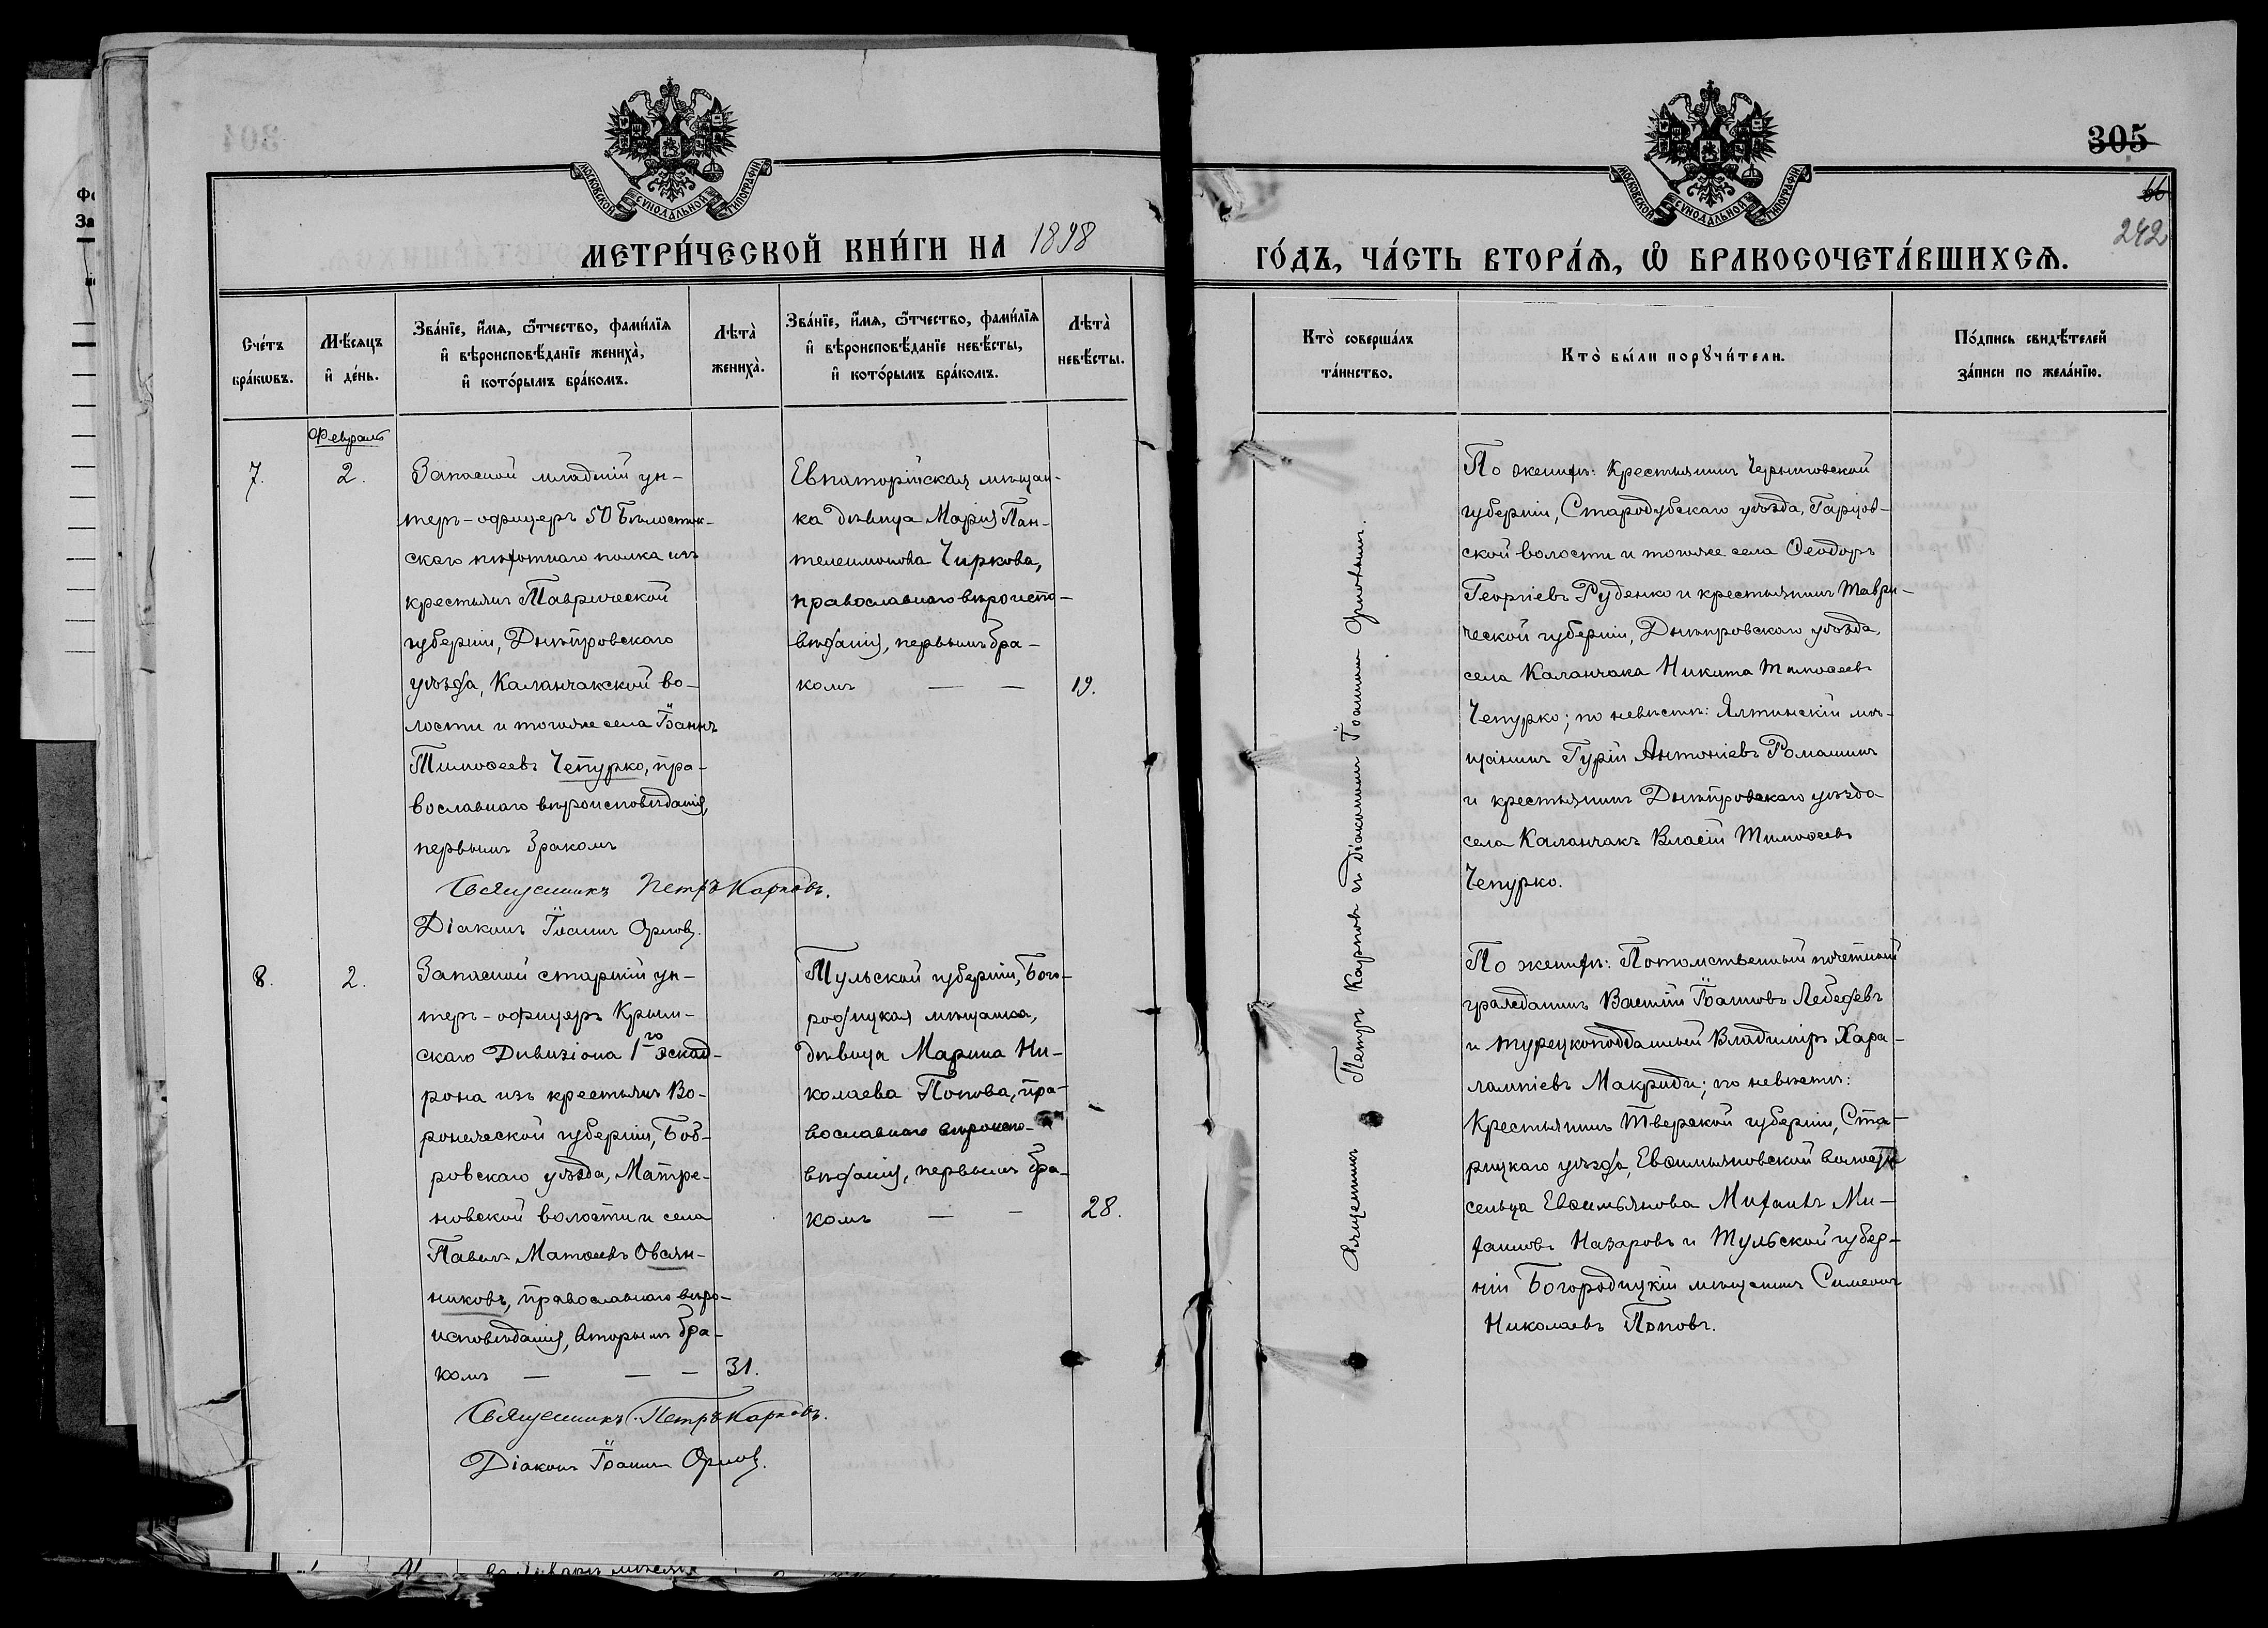 МОСКОВСКОЙ СУНОДАЛЬНОЙ ТИПОГРАФІИ
МЕТРИ́ЧЕСКОЙ КНИ́ГИ НА 1898
Сче́тъ бра́кѡвъ.
Мѣ́сяцъ и҆ де́нь.
Зва́нїе, и҆́мѧ, ѻ҆́тчество, фами́лїѧ и҆ вѣроисповѣ́данїе жениха̀, и҆ кото́рымъ бра́комъ.
Лѣта̀ жениха̀.
Зва́нїе, и҆́мѧ, ѻ҆́тчество, фами́лїѧ и҆ вѣроисповѣ́данїе невѣ́сты, и҆ кото́рымъ бра́комъ.
Лѣта̀ невѣ́сты.
Февраль
7.
2.
Запасной младшій ун-
теръ-офицеръ 50 Бѣлосток-
скаго пѣхотнаго полка изъ
крестьянъ Таврической
губерніи, Днѣпровскаго
уѣзда, Каланчакской во-
лости и тогоже села Іоаннъ
Тимоѳеевъ Чепурко, пра-
вославнаго вѣроисповѣданія,
первымъ бракомъ
Священникъ Петръ Карповъ.
Діаконъ Іоаннъ Орловъ.
Евпаторійская мѣщан-
ка дѣвица Марія Пан-
телеимонова Чиркова,
православнаго вѣроиспо-
вѣданія, первымъ бра-
комъ — —
19.
8.
2.
Запасной старшій ун-
теръ-офицеръ Крым-
скаго Дивизіона 1го эскад-
рона изъ крестьянъ Во-
ронежской губерніи, Боб-
ровскаго уѣзда, Матре-
новской волости и села
Павелъ Матѳеевъ Овсян-
никовъ, православнаго вѣро-
исповѣданія, вторымъ бра-
комъ — — —
31.
Священникъ Петръ Карповъ.
Діаконъ Іоаннъ Орловъ.
Тульской губерніи, Бого-
родицкая мѣщанка,
дѣвица Марина Ни-
колаева Попова, пра-
вославнаго вѣроиспо-
вѣданія, первымъ бра-
комъ — —
28.
305
66
242
МОСКОВСКОЙ СУНОДАЛЬНОЙ ТИПОГРАФІИ
ГО́ДЪ, ЧА́СТЬ ВТОРА́Ѧ, Ѡ҆ БРАКОСОЧЕТА́ВШИХСѦ.
Кто̀ соверша́лъ та́инство.
Кто̀ бы́ли порꙋчи́тели.
По́дпись свидѣ́телей за́писи по жела́нїю.
Священникъ Петръ Карповъ съ Діакономъ Іоанномъ Орловымъ.
По женихѣ: Крестьянинъ Черниговской
губерніи, Стародубскаго уѣзда, Гарцов-
ской волости и тогоже села Ѳеодоръ
Георгіевъ Руденко и крестьянинъ Таври-
ческой губерніи, Днѣпровскаго уѣзда,
села Каланчака Никита Тимоѳеевъ
Чепурко; по невѣстѣ: Ялтинскій мѣ-
щанинъ Гурій Антоніевъ Ромашинъ
и крестьянинъ Днѣпровскаго уѣзда
села Каланчакъ Власій Тимоѳеевъ
Чепурко.
По женихѣ: Потомственный почетный
гражданинъ Василій Іоанновъ Лебедевъ
и турецкоподданный Владиміръ Хара-
лампіевъ Макриди; по невѣстѣ:
Крестьянинъ Тверской губерніи, Ста-
рицкаго уѣзда, Евѳимьяновской волости
сельца Евѳимьянова Михаилъ Ми-
хаиловъ Назаровъ и Тульской губер-
ніи Богородицкій мѣщанинъ Симеонъ
Николаевъ Поповъ.